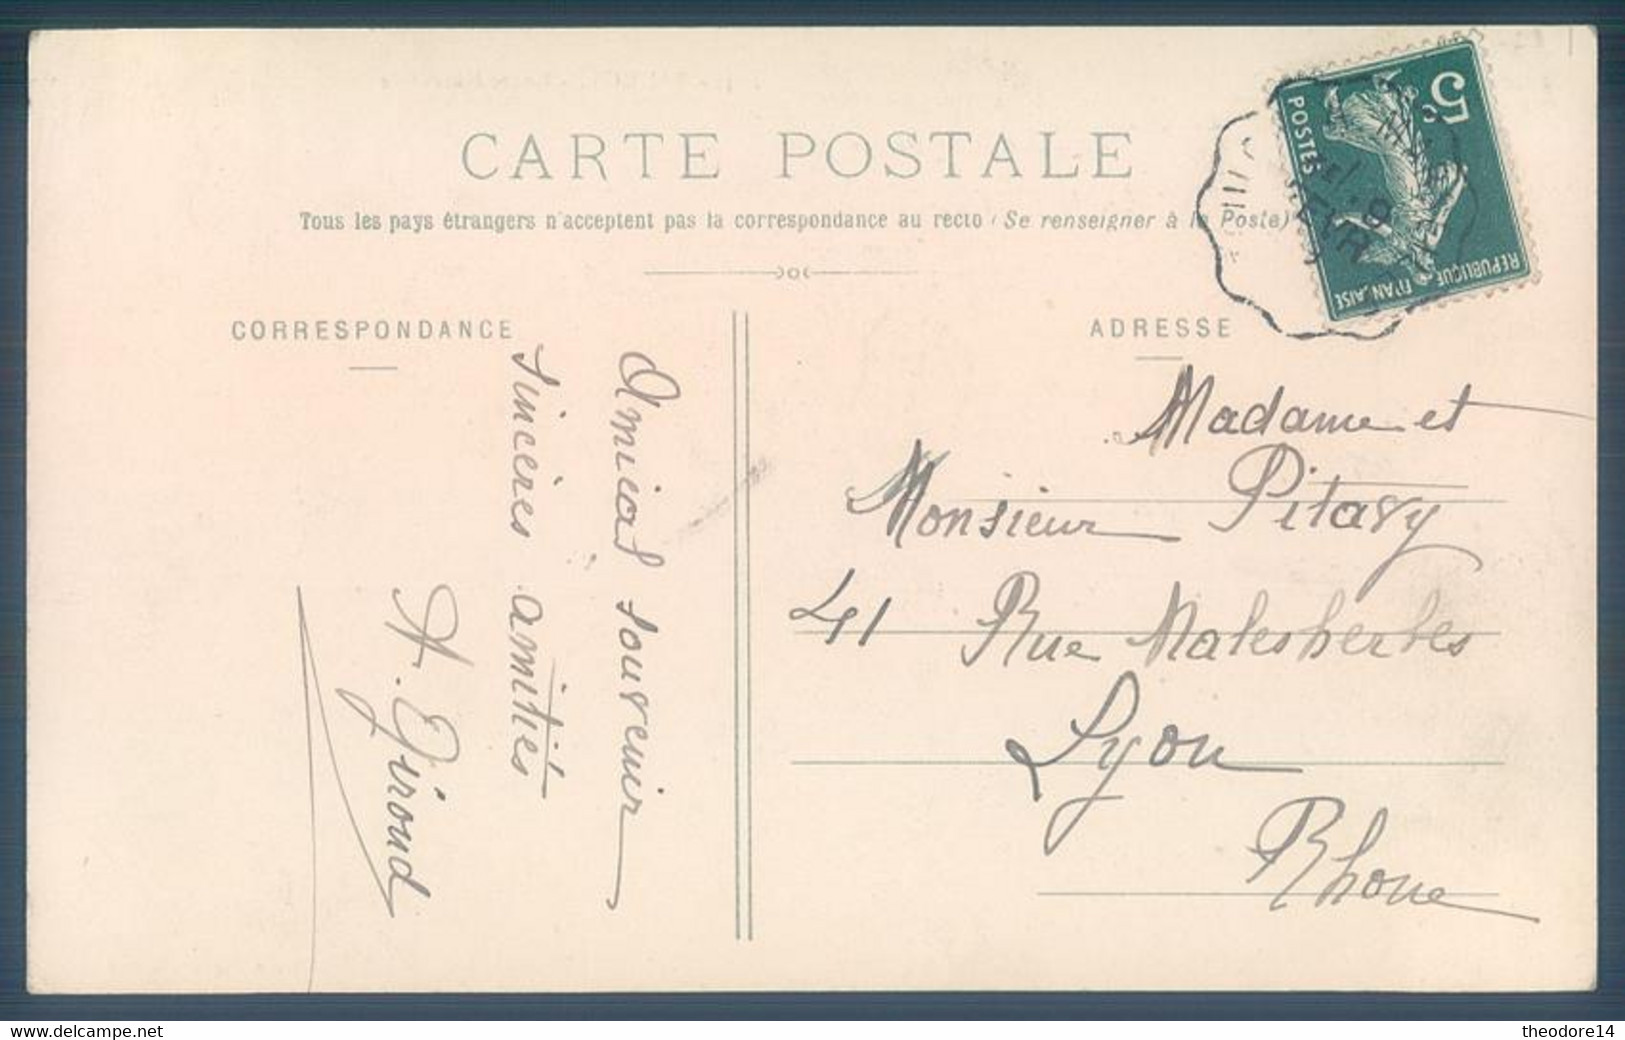 CARTE POSTALE
Tous les pays étrangers n'acceptent pas la correspondance au recto (Se renseigner à la Poste)
CORRESPONDANCE
Amical souvenir
sincères amitiés
A. Giroud
ADRESSE
Madame et
Monsieur Pitavy
41 Rue Malesherbes
Lyon
Rhone
5c
POSTES
REPUBLIQUE FRANÇAISE
www.delcampe.net
theodore14